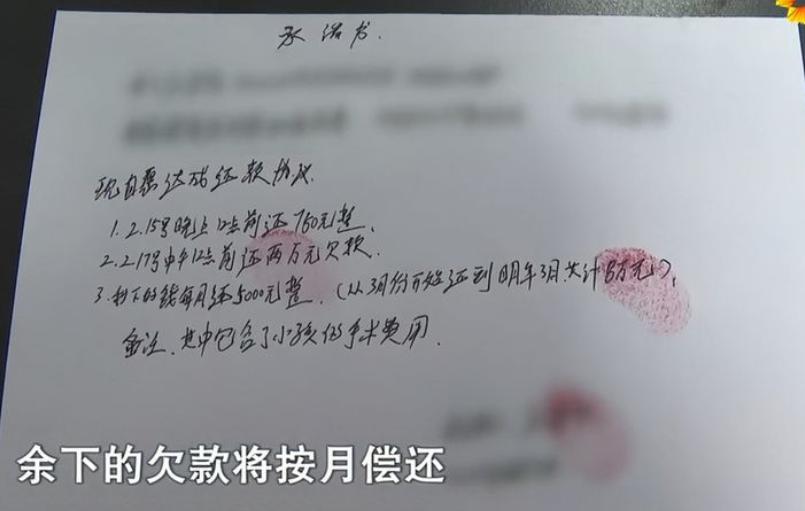 承诺书.
现自愿达成还款协议.
1. 2.15号晚上12点前还760元整.
2. 2.17号中午12点前还两万元欠款.
3. 剩下的钱每月还5000元整.(从3月份开始还到明年3月共计6万元).
备注.其中包含了小孩的手术费用.
余下的欠款将按月偿还